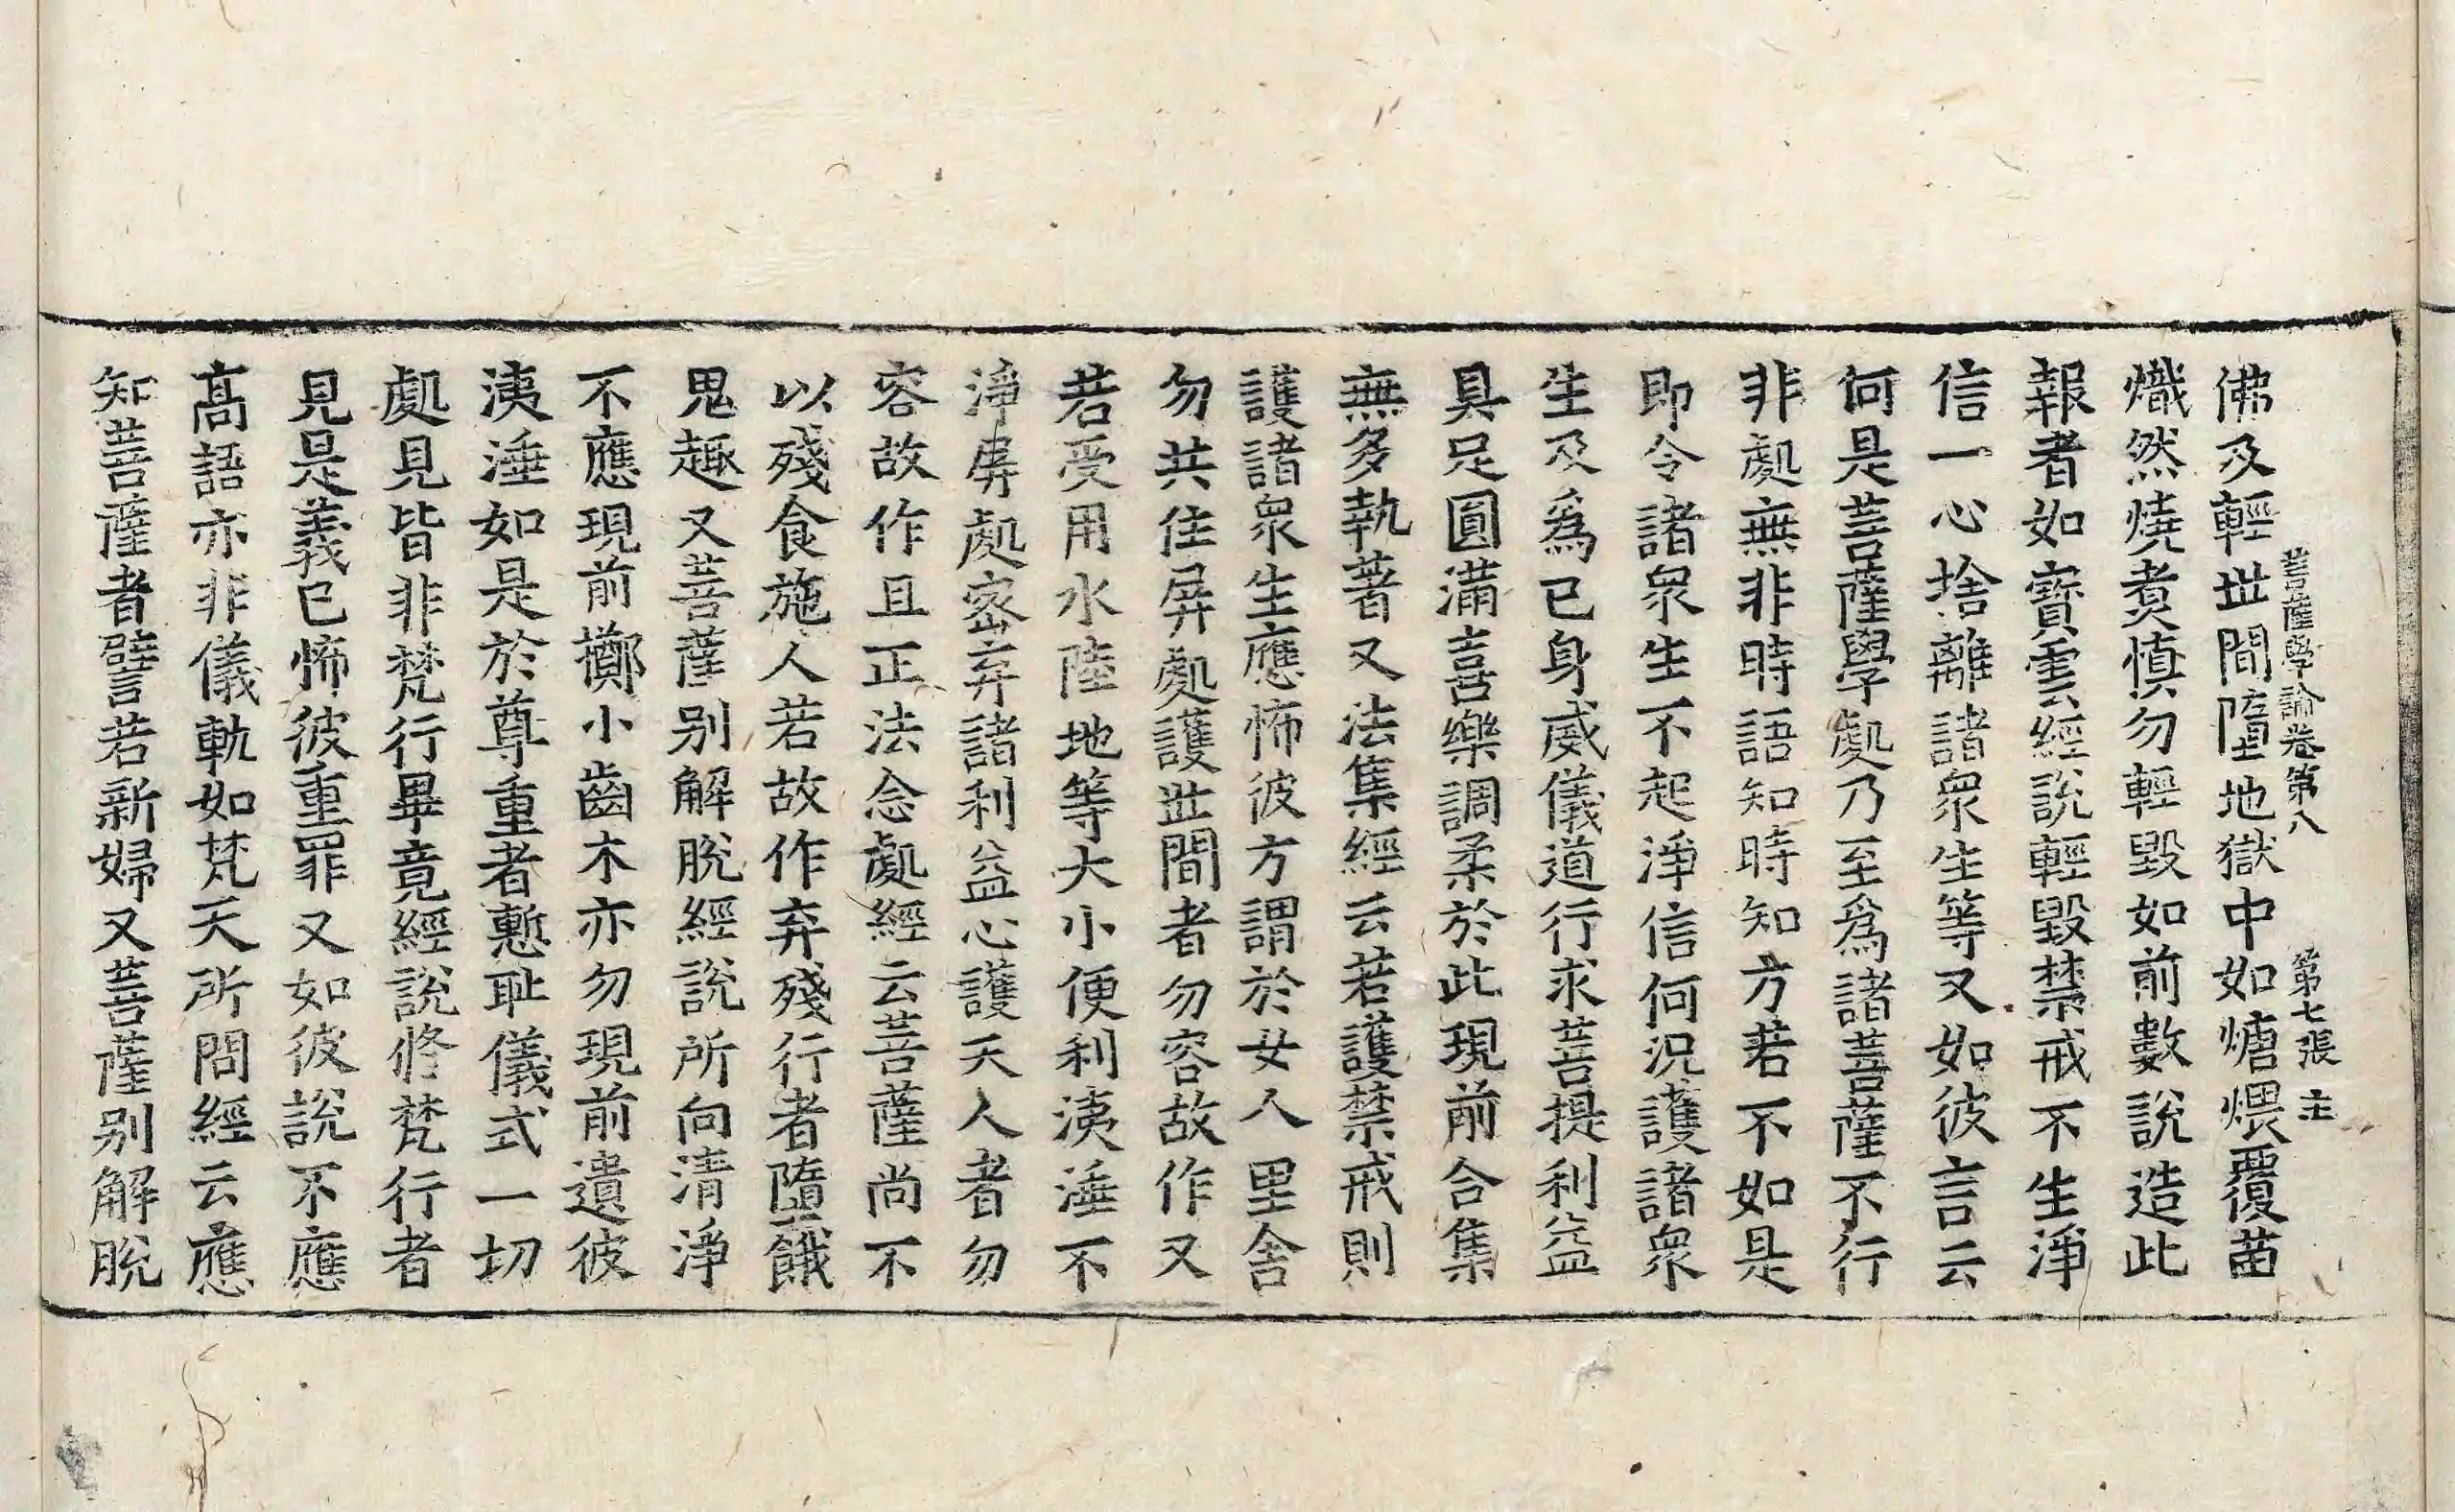 菩薩學論卷第八　第七張　主
佛及輕世間墮地獄中如煻煨覆苗
熾然燒煑慎勿輕毀如前數說造此
報者如寶雲經說輕毀禁戒不生淨
信一心捨離諸衆生等又如彼言云
何是菩薩學處乃至爲諸菩薩不行
非處無非時語知時知方若不如是
即令諸衆生不起淨信何況護諸衆
生及爲已身威儀道行求菩提利益
具足圓滿喜樂調柔於此現前合集
無多執著又法集經云若護禁戒則
護諸衆生應怖彼方謂於女人里舍
勿共住屏處護世間者勿容故作又
若受用水陸地等大小便利洟涶不
淨屏處密弃諸利益心護天人者勿
容故作且正法念處經云菩薩尚不
以殘食施人若故作弃殘行者墮餓
鬼趣又菩薩别解脫經說所向清淨
不應現前擲小齒木亦勿現前遺彼
洟涶如是於尊重者慙耻儀式一切
處見皆非梵行畢竟經說修梵行者
見是義已怖彼重罪又如彼說不應
高語亦非儀軌如梵天所問經云應
知菩薩者譬若新婦又菩薩别解脫